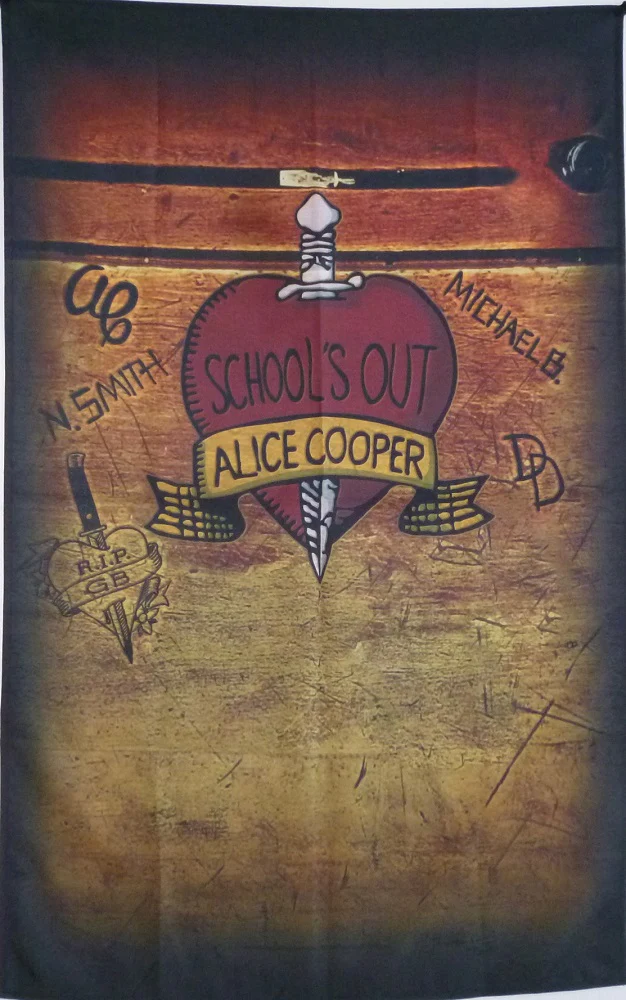 AC
MICHAEL B.
N. SMITH
SCHOOL'S OUT
ALICE COOPER
DD
R.I.P.
GB